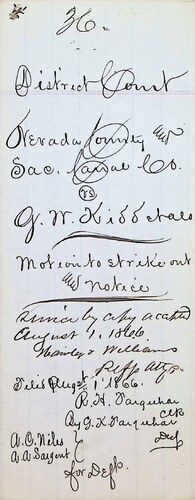 36.
District Court
Nevada County and
Sac. Canal Co.
vs
G. W. Kidd et als
Motion to strike out
and notice
Service by copy accepted
August 1, 1866
Hawley & Williams
Plffs Attys.
Filed August 1st 1866.
R. H. Farquhar
Clk
By J. K. Farquhar
Dep
A. C. Niles
A. A. Sargent
for Defts.